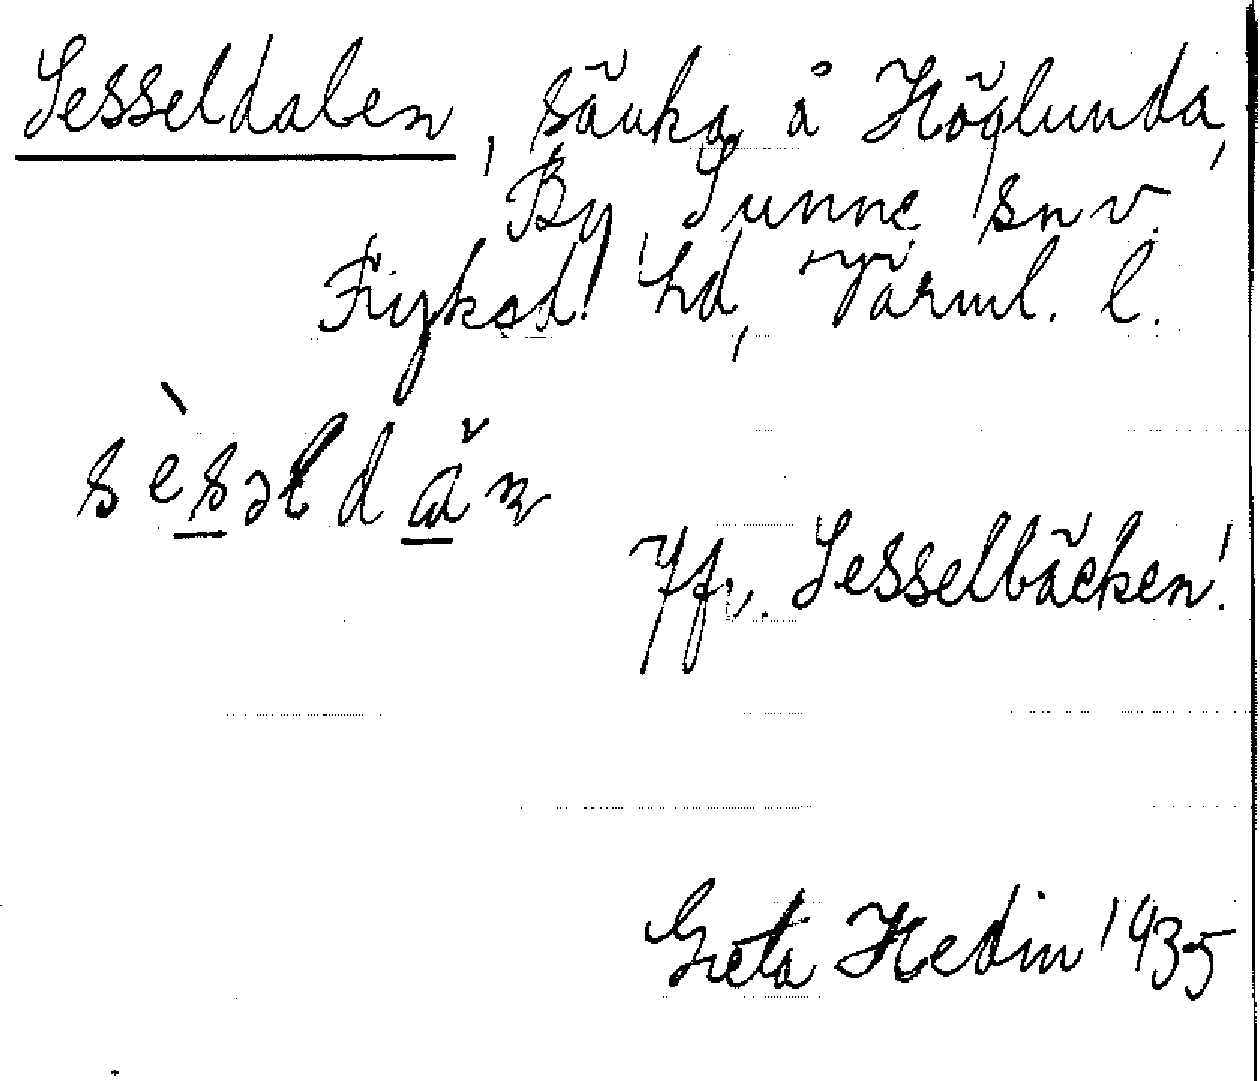 Sesseldalen, sänka å Höglunda,
By Sunne sn v.
Fryksd. hd, Värml. l.
sèsəldăn
Jfr. Sesselbäcken!
Greta Hedin 1935